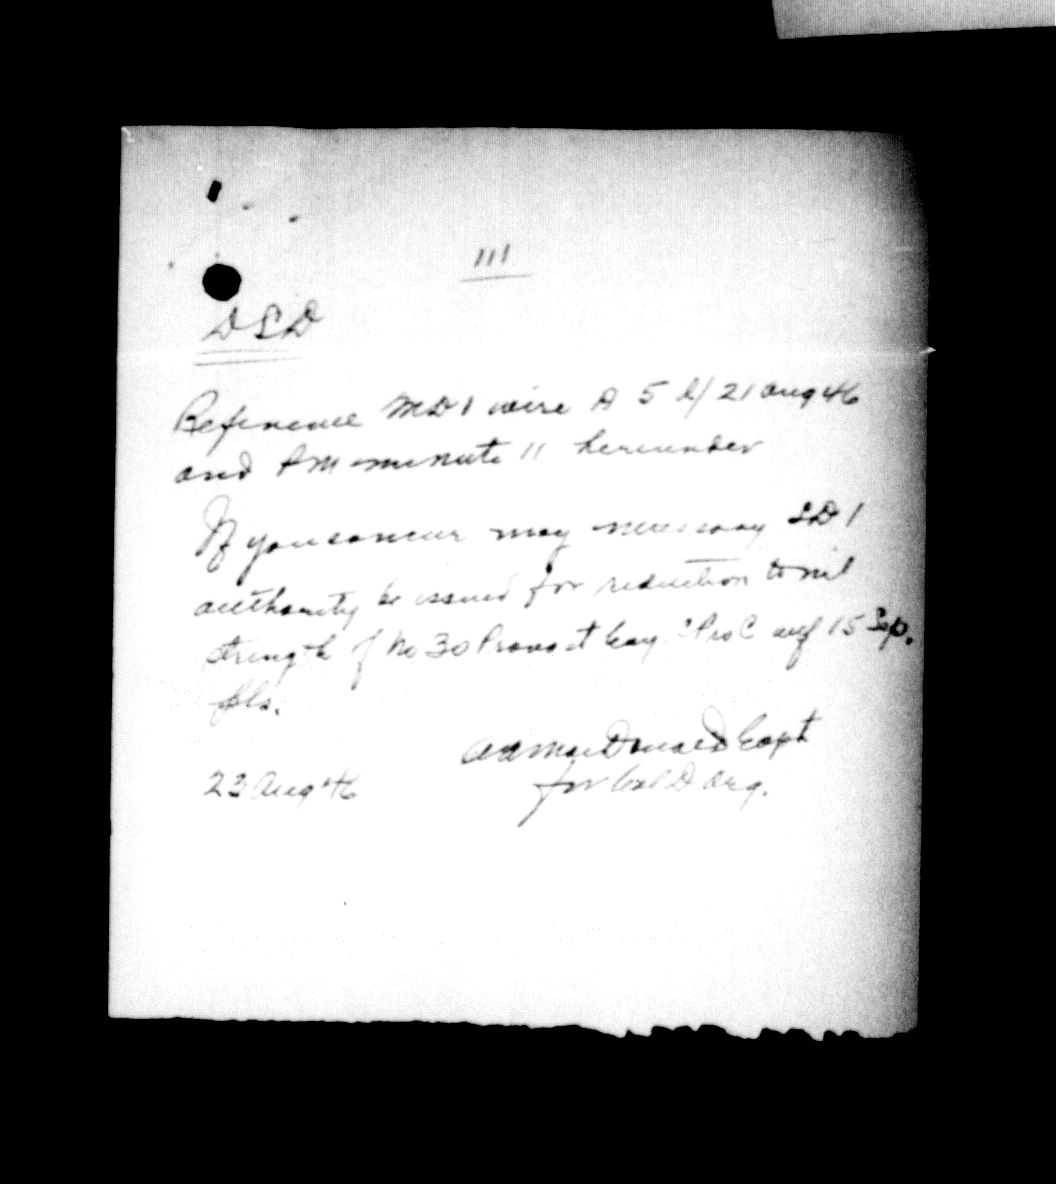 111
DSD
Reference MD1 wire A 5 d/ 21 Aug 46
and PM minute 11 hereunder
If you concur may necessary SD1
authority be issued for reduction to nil
strength of No 30 Provost Coy CProC wef 15 Sep.
pls.
MacDonald Capt
23 Aug 46 for Col D Org.